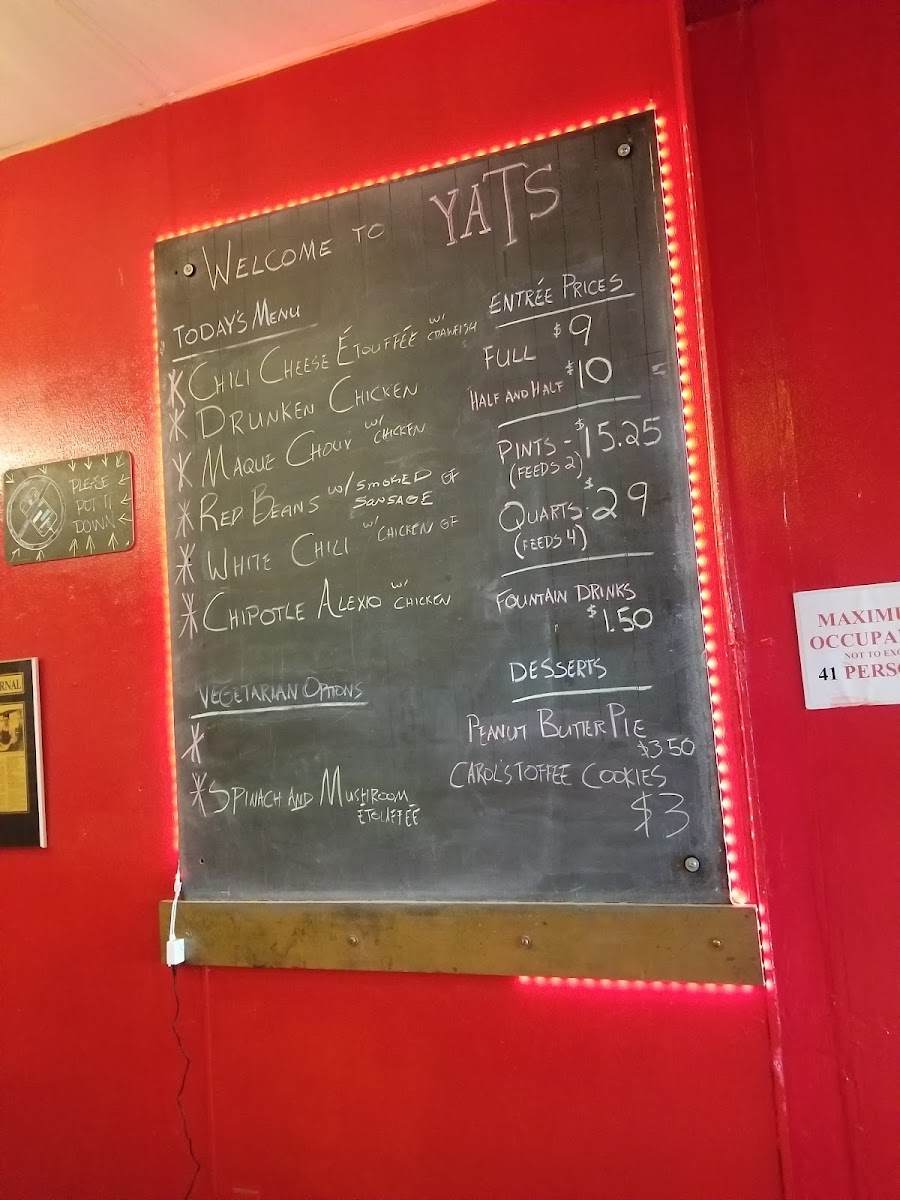 WELCOME TO YATS
TODAY'S MENU
CHILI CHEESE ÉTOUFFÉE W/ CRAWFISH
DRUNKEN CHICKEN
MAQUE CHOUX W/ CHICKEN
RED BEANS W/ SMOKED SAUSAGE GF
WHITE CHILI W/ CHICKEN GF
CHIPOTLE ALEXIO W/ CHICKEN
VEGETARIAN OPTIONS
SPINACH AND MUSHROOM
ÉTOUFFÉE
ENTRÉE PRICES
FULL $9
HALF AND HALF $10
PINTS - $15.25
(FEEDS 2)
QUARTS - $29
(FEEDS 4)
FOUNTAIN DRINKS
$1.50
DESSERTS
PEANUT BUTTER PIE
$3.50
CAROL'S TOFFEE COOKIES
$3
PLEASE
PUT IT
DOWN
RNAL
MAXIMU
OCCUPA
NOT TO EXC
41 PERSO